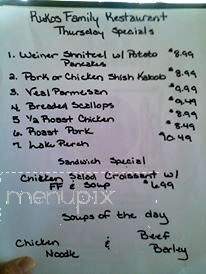 Rukos Family Restaurant
Thursday Specials
1. Weiner Shnitzel w/ Potato Pancakes $8.99
2. Pork or Chicken Shish Kabob $8.99
3. Veal Parmesan $9.99
4. Breaded Scallops $9.49
5. ½ Roast Chicken $8.99
6. Roast Pork $8.49
7. Lake Perch $10.49
Sandwich Special
Chicken Salad Croissant w/
FF & Soup $6.99
menupix
Soups of the day
Chicken Noodle & Beef Barley